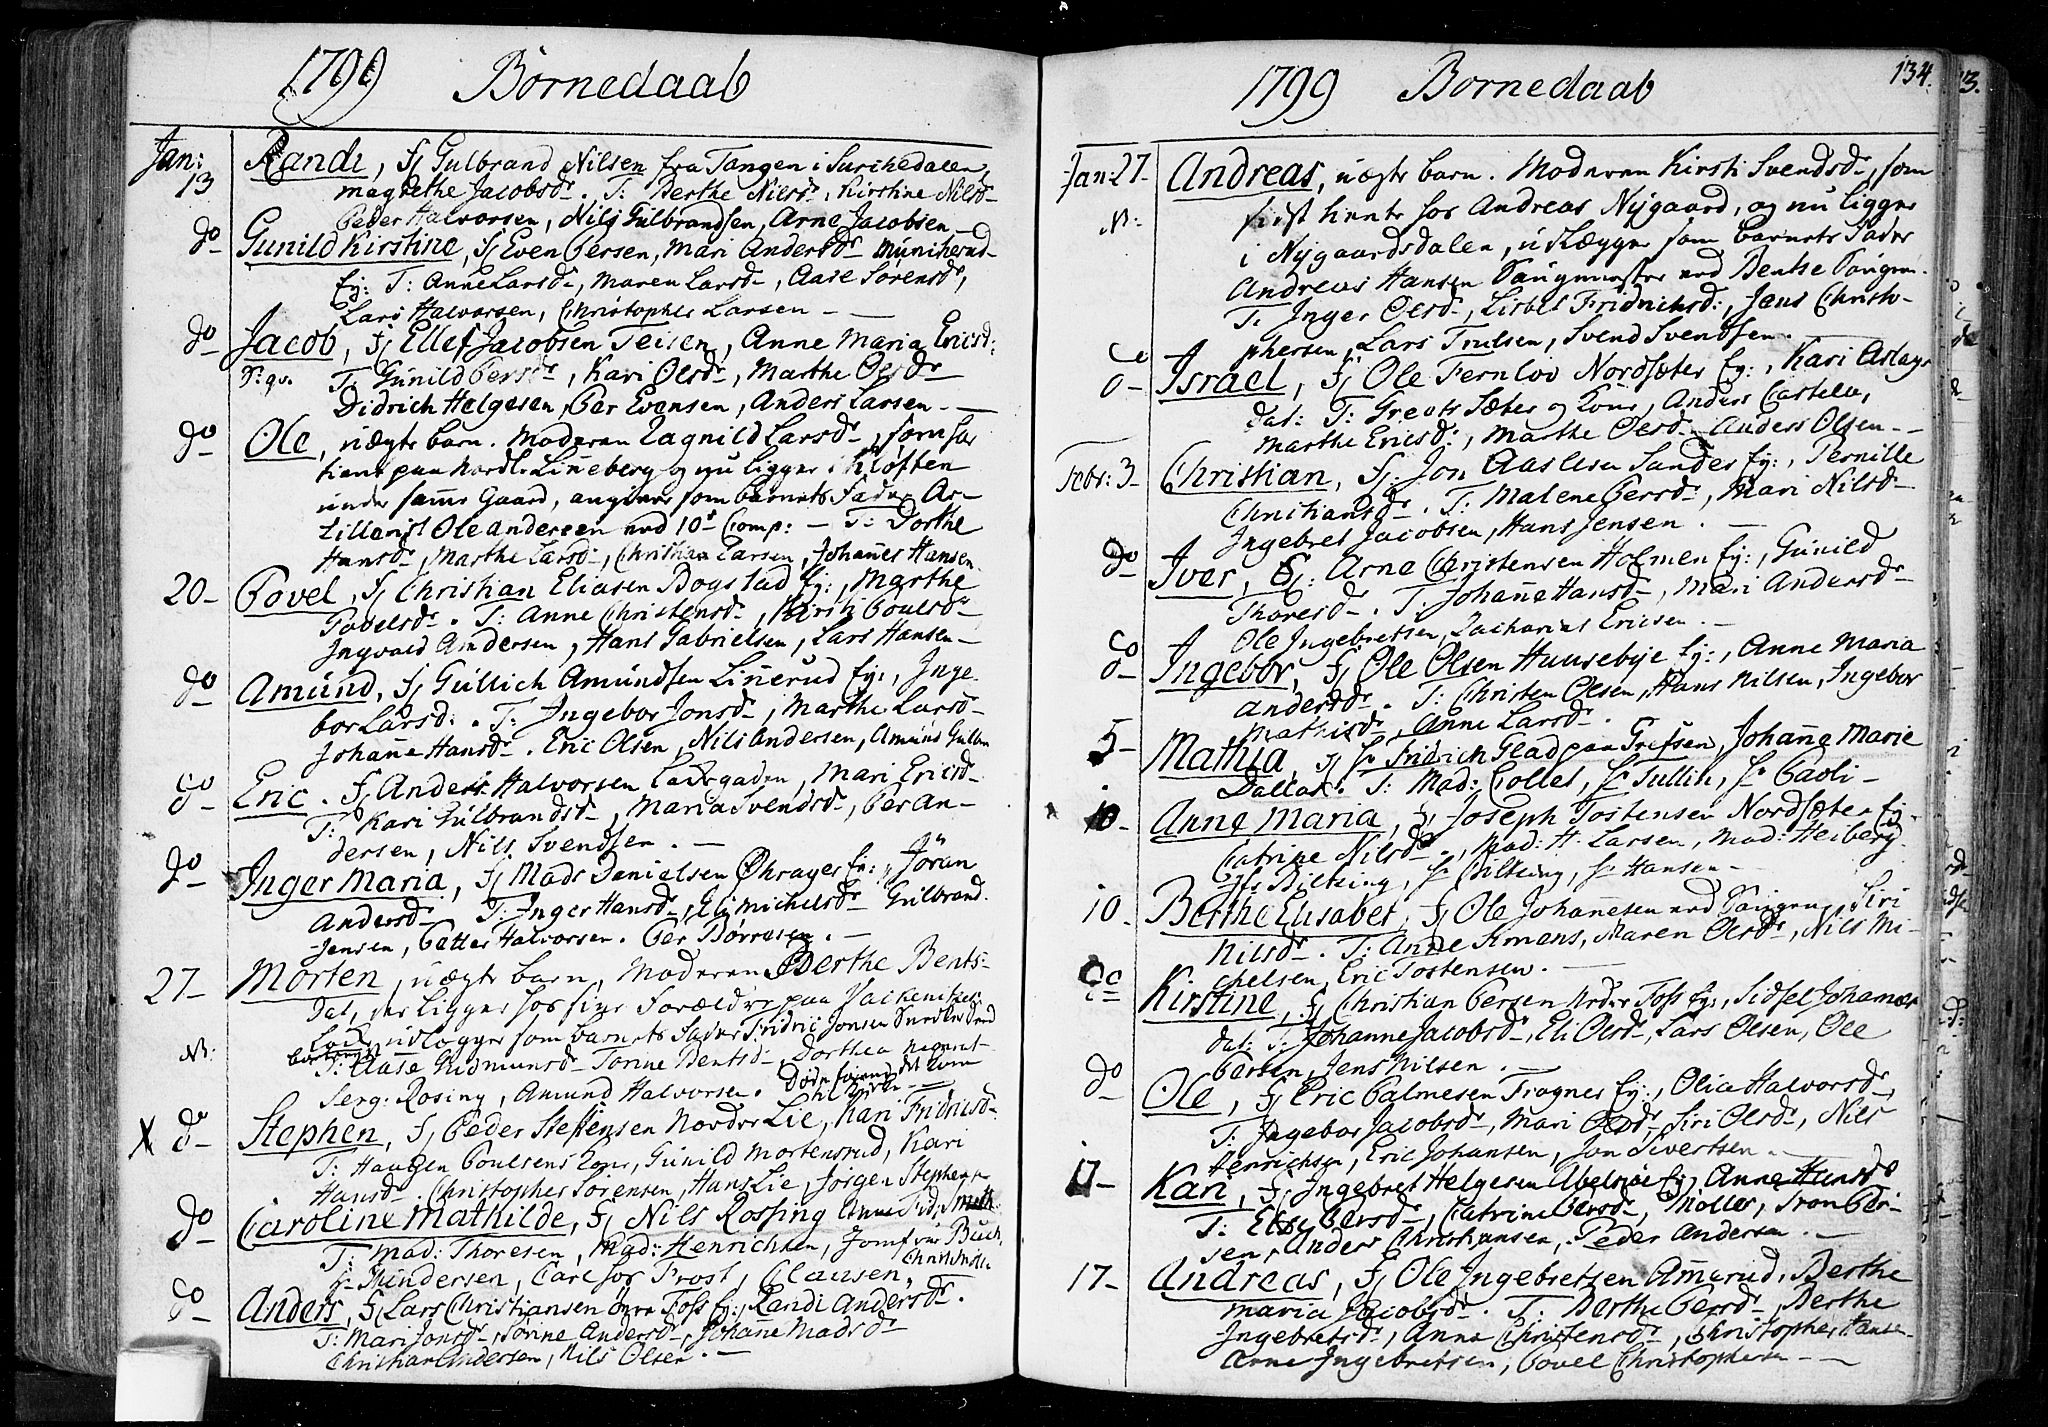 1799 Børnedaab
Jan: 13 Randi, Fj Gulbrand Nilsen fra Tangen i Surchedalen,
magrethe Jacobsdr. T: Berthe Nilsdr, Kirstine Nilsdr
Peder Halvorsen, Nils Gulbrandsen, Arne Jacobsen
do Gunild Kirstine, Fj Even Persen, Mari Andersdr
Ey: T: Anne Larsdr, Maren Larsdr, Aase Sørensdr,
Lars Halvorsen, Christopher Larsen
do Jacob, Fj Ellef Jacobsen Teisen, Anne Maria Ericsd:
T: Gunild Persdr, Kari Olsdr, Marthe Olsdr
Didrich Helgesen, Per Evensen, Anders Larsen
do Ole, uægte barn. Moderen Ragnild Larsdr, som har
tient paa Nordr Lineberg og nu ligger i Kløften
under samme Gaard, angiver som barnets Fader Ar-
tillerist Ole Andersen ved 10d Comp: T: Dorthe
Hansdr, Marthe Larsdr, Christian Larsen, Johanes Hansen
20 Povel, Fj Christian Eliasen Bogstad Ey:, Marthe
Povelsdr. T: Anne Christensdr, Kirsti Poulsdr
Ingvald Andersen, Hans Gabrielsen, Lars Hansen
do Amund, Fj Gullich Amundsen Linerud Ey:, Inge-
bor Larsd:. T: Ingebor Jonsdr, Marthe Larsdr
Johane Hansdr. Eric Olsen, Nils Andersen, Amund Gulbr
do Eric. Fj Anders Halvorsen Ladegaden, Mari Ericsdr
T: Kari Gulbrandsdr, Maria Svendsdr, Per An-
dersen, Nils Svendsen.
do Inger Maria, Fj Mads Danielsen Ey:, Jöran
Andersdr T: Inger Hansdr, Eli Michelsdr Gulbrand
Jensen, Petter Halvorsen. Per Børresen.
27 Morten, uægte barn, Moderen Berthe Bents-
dat, der ligger hos sine Forældre paa
NB: udlægger som barnets Fader Fridric Jonsen
T: Aase Gudmunsdr Torine Bentsdr, Dorthea
Serg: Rosing, Amund Halvorsen. Døde førend det kom
til Kirke
X do Stephen, Fj Peder Steffensen Nordre Lie, Kari Fridricsdr
T: Haagen Poulsens Kone, Gunild Mortensrud, Kari
Hansdr. Christopher Sørensen, Hans Lie, Jörgen Stephens
do Caroline Mathilde, Fj Nils Rossing Anne
T: Mad: Thoresen, Mad: Henrichsen, Jomfrue Buch,
Hr Mindersen, Carl hos Frost, Clausen,
do Anders, Fj Lars Christiansen øvre Foss Ey:, Randi Andersdr.
T: Mari Jonsdr, Sørine Andersdr, Johane Madsdr
Christian Andersen, Nils Olsen.
1799 Børnedaab 134.
Jan: 27 Andreas, uægte barn. Moderen Kirsti Svendsdr, som
NB: sidst tiente hos Andreas Nygaard, og nu ligger
i Nygaardsdalen, udlægger som barnets Fader
Andreas Hansen Saugmester ved Bentse Saugen.
T: Inger Olsdr, Lisbet Fridrichsd:, Jens Christo-
phersen, Lars Trulsen, Svend Svendsen.
do Israel, Fj Ole Fernlov Nordsæter Ey:, Kari Aslags
dat: T: Greats Sæter og Kone, Anders Castelv,
Marthe Ericsd:, Marthe Olsdr Anders Olsen
Febr: 3 Christian, Fj: Jon Aaslesen Sander Ey:, Pernille
Christiansdr. T: Malene Persdr, Mari Nilsdr
Ingebret Jacobsen, Hans Jensen.
do Iver, Fj: Arne Christensen Holmen Ey:, Gunild
Thoresdr. T: Johane Hansdr, Mari Andersdr
Ole Ingebretsen, Zacharias Ericsen.
do Ingebor, Fj Ole Olsen Huusebye Ey:, Anne Maria
Andersdr. T: Christen Olsen, Hans Nilsen, Ingebor
Mathisdr, Anne Larsdr.
5 Mathia, Fj Hr Fridrich Glad paa Grefsen, Johane Marie
Dallas. T: Mad: Collet, Hr Tullin, Hr Paoli
10 Anne Maria, Fj Joseph Tostensen Nordsæter Ey:
Catrine Nilsdr, Mad: H. Larsen, Mad: Heiberg
Jfr Biltzing, Hr Biltzing, Hr Hansen
10 Berthe Elisabet, Fj Ole Johanesen ved Saugene, Siri
Nilsdr. T: Anne Simens, Maren Olsdr, Nils Mi-
chelsen, Eric Tostensen.
do Kirstine, Fj Christian Persen Nedre Foss Ey:, Sidsel Johanes
dat: T: Johanne Jacobsdr, Eli Olsdr, Lars Olsen, Ole
Persen, Jens Nilsen.
do Ole, Fj Eric Palmesen Frogner Ey:, Olia Halvorsdr,
T: Ingebor Jacobsdr, Mari Olsdr, Siri Olsdr, Nils
Henrichsen, Eric Johansen, Jon Sivertsen
17 Kari, Fj Ingebret Helgesen Abelsøe Ey:, Anne Hansdr
T: Else Persdr, Catrine Persdr, Møller, Iron Per-
sen, Anders Christiansen, Peder Andersen.
17 Andreas, Fj Ole Ingebretsen Amerud, Berthe
Maria Jacobsdr. T: Berthe Persdr, Berthe
Ingebretsdr, Anne Christensdr, Christopher Hanse-
Arne Ingebretsen, Povel Christophersen